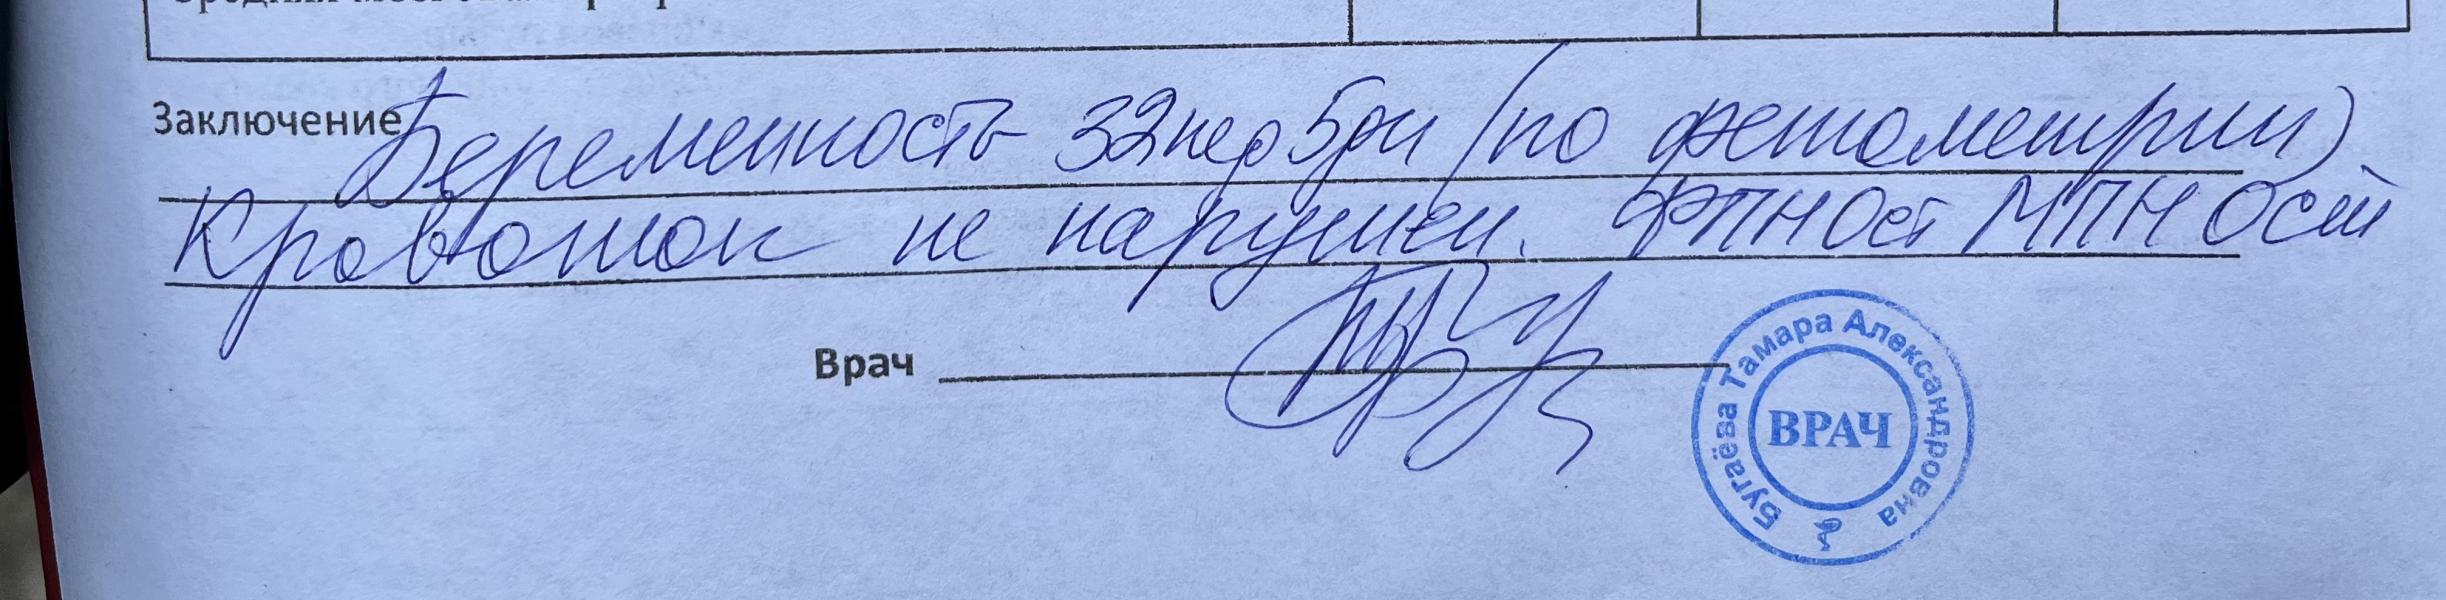 Заключение Беременность 32нед 5дн (по фетометрии)
Кровоток не нарушен. ФПН 0ст МПН 0ст
Врач
Бугаёва Тамара Александровна
ВРАЧ